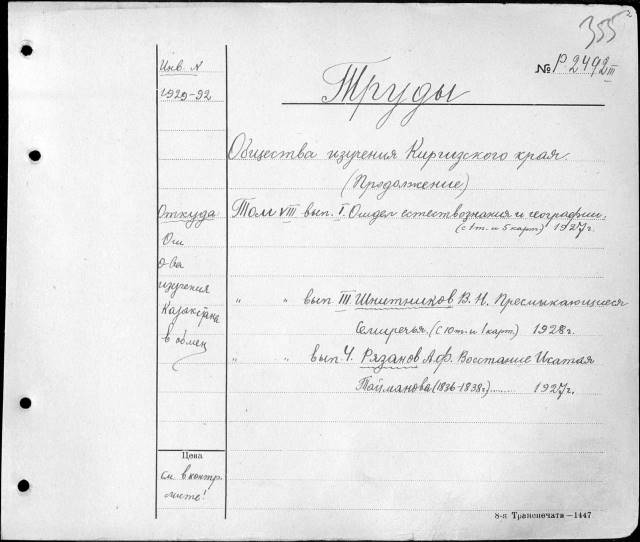 355
2
№ Р.2492 III
Труды
Инв. N
1929-92
Общества изучения Киргизского края.
(Продолжение)
Откуда
От
о-ва
изучения
Казакстана
в обмен
Том VIII вып. I. Отдел естествознания и географии.
(с 1т. и 5 карт.) 1927г.
" " вып III Шнитников В.Н. Пресмыкающиеся
Семиречья. (с 10т. и 1 карт.) 1928г.
" " вып. 4. Рязанов А.Ф. Восстание Исатая
Тайманова (1836-1838г.) ......... 1927г.
Цена
см в контр.
листе!
8-я Транспечать—1447